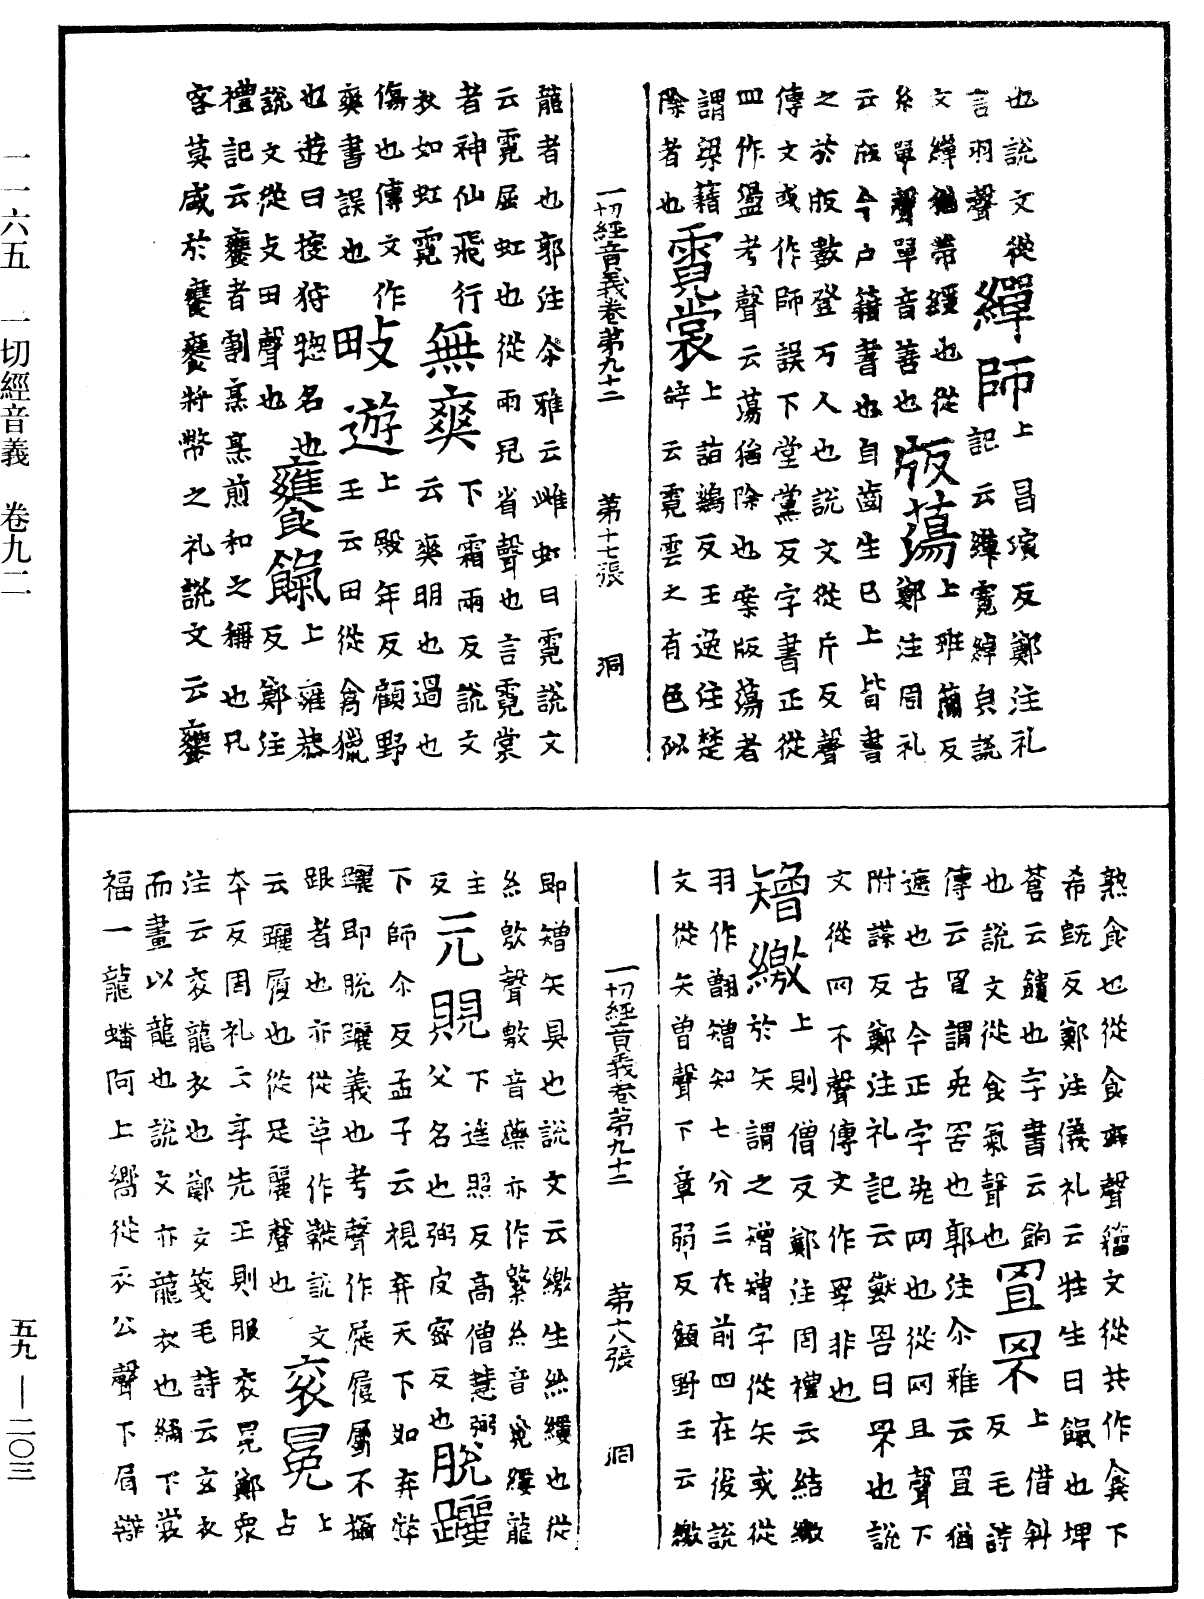 也說文從
言羽聲
繟師
上昌演反鄭注礼
記云繟寬綽皃說
文繟猶帶緩也從
糸單聲單音善也
版蕩
上班蕳反
鄭注周礼
云版今户籍書也自齒生已上皆書
之於版數登万人也說文從斤反聲
傳文或作師誤下堂黨反字書正從
皿作盪考聲云蕩猶除也案版蕩者
謂梁籍
除者也
霓裳
上詣鷄反王逸住楚
辝云霓雲之有色似
一切經音義卷第九十二 第十七張 洞
龍者也郭注尒雅云雌虹曰霓說文
云霓屈虹也從雨皃省聲也言霓裳
者神仙飛行
衣如虹霓
無爽
下霜兩反說文
云爽明也過也
傷也傳文作
爽書誤也
畋遊
上殿年反顧野
王云田從禽獵
也遊曰按狩惣名也
說文從攴田聲也
饔餼
上雍恭
反鄭注
禮記云饔者割烹烹煎和之稱也凡
客莫咸於饔饔將幣之礼說文云饔
熟食也從食雍聲籀文從共作㬱下
希既反鄭注儀礼云牲生曰餼也埤
蒼云饋也字書云餉
也說文從食氣聲也
罝罘
上借斜
反毛詩
傳云罝謂兎罟也郭注尒雅云罝猶
遮也古今正字兔网也從网且聲下
附謀反鄭注礼記云獸罟曰罘也說
文從网不聲傳文作罦非也
矰繳
上則僧反鄭注周禮云結繳
於矢謂之矰矰字從矢或從
羽作䎖矰知七分三在前四在後說
文從矢曽聲下章弱反顧野王云繳
一切經音義卷第九十二 第十八張 洞
即矰矢具也說文云繳生絲縷也從
糸敫聲敫音藥亦作繁糸音覓縷龍
主
反
元睍
下遙照反高僧慧弼
父名也弼皮宻反也
脫躧
下師尒反孟子云視弃天下如弃弊
躧即脫躧義也考聲作屣履屬不攝
跟者也亦從草作鞿說文
云躧履也從足麗聲也
衮冕
上
占
本反周礼云享先王則服衮冕鄭衆
注云衮龍衣也鄭玄箋毛詩云玄衣
而畫以龍也說文亦龍衣也繡下裳
福一龍蟠阿上嚮從衣公聲下眉辯
一一六五 一切經音義 卷九二
五九 — 二〇三